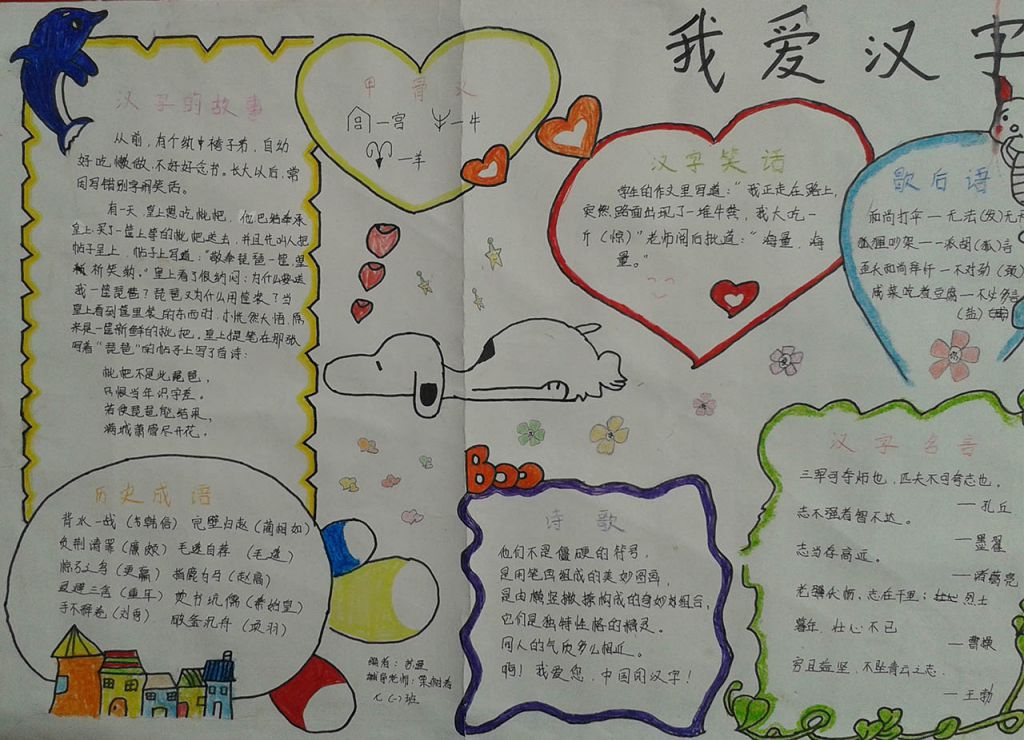 我爱汉字
汉字的故事
从前,有个纨绔子弟,自幼
好吃懒做,不好好念书。长大以后,常
因写错别字闹笑话。
有一天,皇上想吃枇杷,他巴结奉承
皇上,买了一筐上等的枇杷送去,并且先叫人把
帖子呈上,帖子上写道:“敬奉琵琶一筐,望
祈笑纳。”皇上看了很纳闷:为什么要送
我一筐琵琶?琵琶又为什么用筐装?当
皇上看到筐里装的东西时,才恍然大悟,原
来是一筐新鲜的枇杷。皇上提笔在那张
写着“琵琶”的帖子上写了首诗:
枇杷不是此琵琶,
只恨当年识字差。
若使琵琶能结果,
满城箫管尽开花。
甲骨文
一宫
一牛
一羊
汉字笑话
学生的作文里写道:“我正走在路上,
突然路面出现了一堆牛粪,我大吃一
斤(惊)”老师阅后批道:“海量,海
量。”
歇后语
和尚打伞—无法(发)无
狐狸吵架——派胡(狐)言
丢了和尚拜忏—不对劲
咸菜吃煮豆腐—不必多言
(盐)
历史成语
背水一战(韩信) 完璧归赵(蔺相如)
负荆请罪(廉颇) 毛遂自荐 (毛遂)
惊弓之鸟(更羸) 指鹿为马(赵高)
退避三舍(重耳) 焚书坑儒(秦始皇)
手不释卷(刘秀) 破釜沉舟(项羽)
编者:
辅导老师:
七(一)班
Boo
诗歌
他们不是僵硬的符号,
是用笔画组成的美妙图画,
是由横竖撇捺构成的奇妙组合,
它们是独特性格的精灵。
同人的气质多么相近。
啊!我爱您,中国的汉字!
汉字名言
三军可夺帅也,匹夫不可夺志也。
—孔丘
志不强者智不达。
—墨翟
志当存高远。
—诸葛亮
老骥伏枥,志在千里;烈士
暮年,壮心不已
—曹操
穷且益坚,不坠青云之志。
—王勃